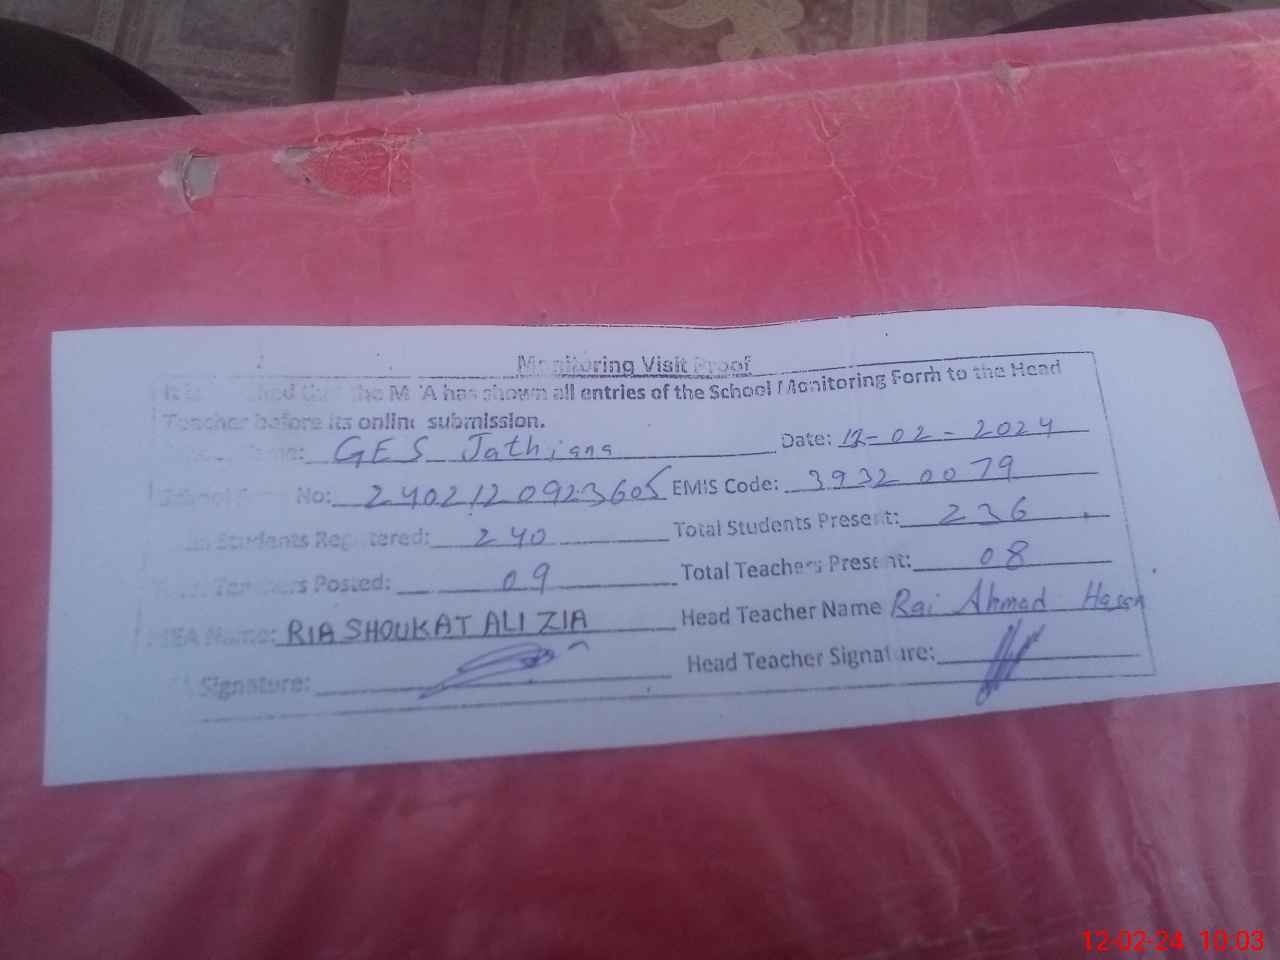 Monitoring Visit Proof
the M A has shown all entries of the School Monitoring Form to the Head
Teacher before its online submission.
GES Jathiana Date: 12-02-2024
School No: 2402120923605 EMIS Code: 39320079
Students Registered: 240 Total Students Present: 236
Teachers Posted: 09 Total Teachers Present: 08
MEA Name: RIA SHOUKAT ALI ZIA Head Teacher Name Rai Ahmad Hasan
Signature: Head Teacher Signature:
12-02-24 10:03